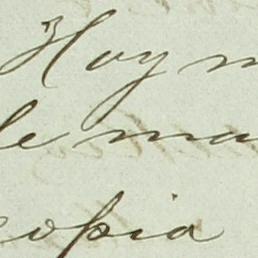 Hoy m
le ma
copia